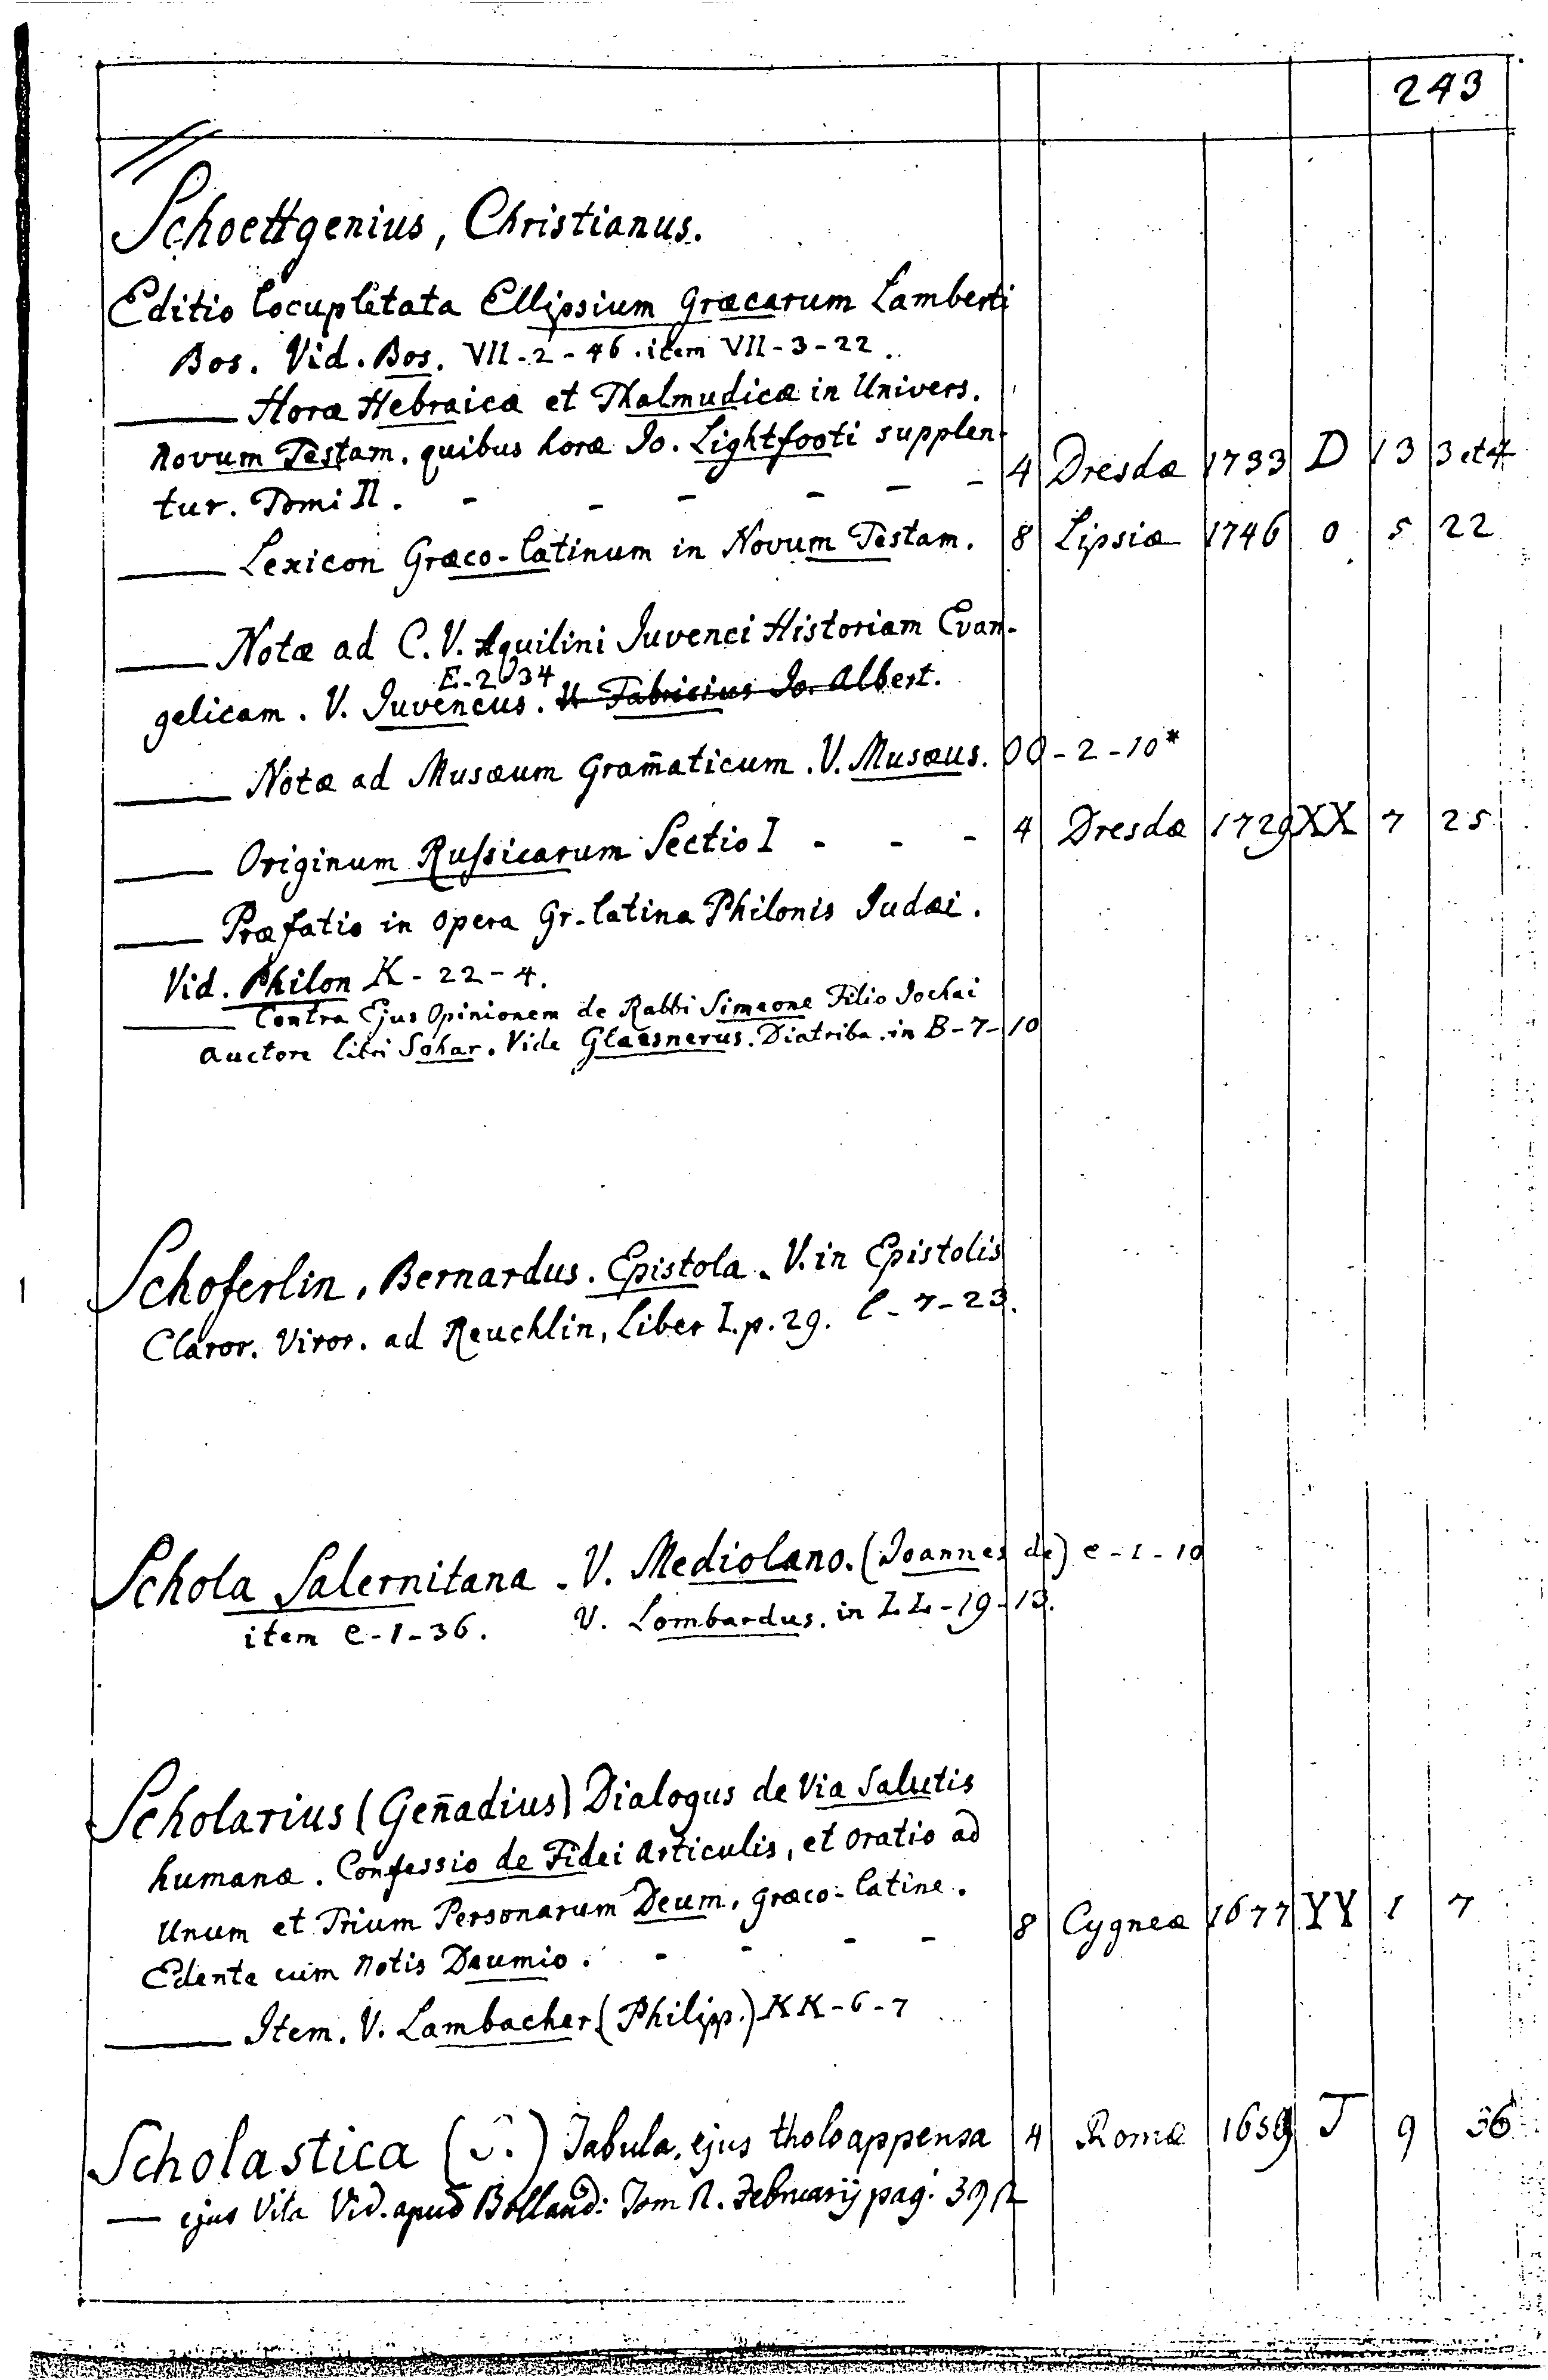 243
Schoettgenius, Christianus.
Editio locupletata Ellipsium Græcarum Lamberti
Bos. Vid. Bos. VII-2-46. item VII-3-22.
—— Horæ Hebraicæ et Thalmudicæ in Univers.
novum Testam. quibus horæ Io. Lightfooti supplen-
tur. Tomi II. - - - - - - 4 Dresdæ 1733 D 13 3 et 4
—— Lexicon Græco-latinum in Novum Testam. 8 Lipsiæ 1746 O 5 22
—— Notæ ad C. V. Aquilini Juvenci Historiam Evan-
E-2-34
gelicam. V. Juvencus. V. Fabricius Jo. Albert.
—— Notæ ad Musæum Gram̄aticum. V. Musæus. OO-2-10*
—— Originum Russicarum Sectio I - - - 4 Dresdæ 1729 XX 7 25
—— Præfatio in opera Gr-latina Philonis Judæi.
Vid. Philon K-22-4.
—— Contra Ejus Opinionem de Rabbi Simeone Filio Jochai
auctore libri Sohar. Vide Glaesnerus. Diatriba. in B-7-10
Schoferlin, Bernardus. Epistola. V. in Epistolis
Claror. Viror. ad Reuchlin, Liber I. p. 29. l-7-23.
Schola Salernitana. V. Mediolano. (Joannes de) e-1-10
item e-1-36. V. Lombardus. in LL-19-13.
Scholarius (Gen̄adius) Dialogus de Via Salutis
humanæ. Confessio de Fidei articulis, et oratio ad
Unum et Trium Personarum Deum, græco-latine.
Edente cum notis Daumio. - - - - 8 Cygneæ 1677 YY 1 7
—— Item. V. Lambacher (Philipp.) KK-6-7
Scholastica (S.) Tabula, ejus tholo appensa 4 Romæ 1659 J 9 36
— ejus Vita Vid. apud Bolland: Tom II. Februarij pag. 392